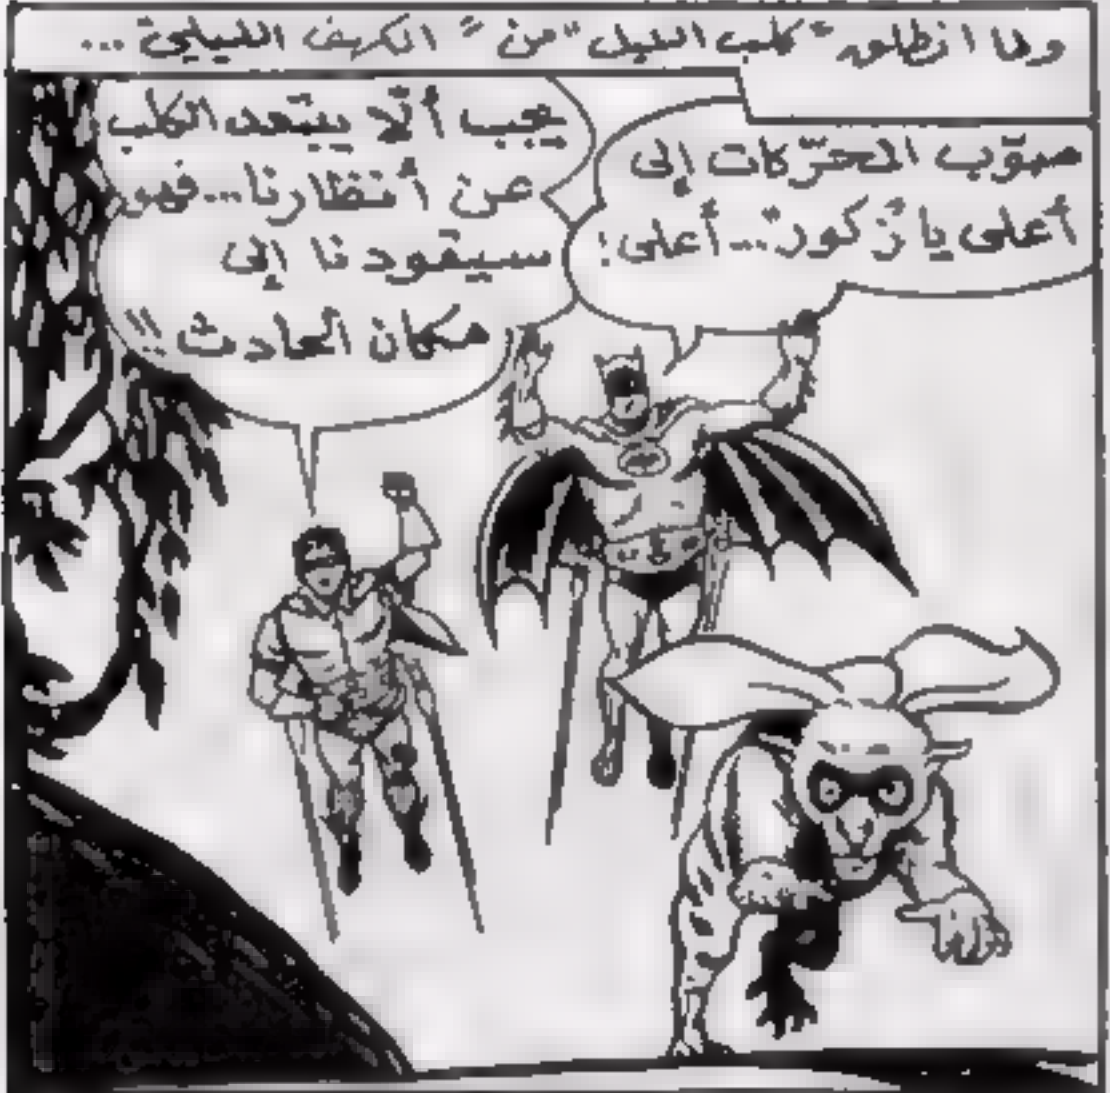 ولما انطلق "كلب الليل" من "الكهف الليلي" ...
صوّب المحرّكات إلى
أعلى يا "زكور"... أعلى!
يجب ألّا يبتعد الكلب
عن أنظارنا... فهو
سيقودنا إلى
مكان الحادث !!